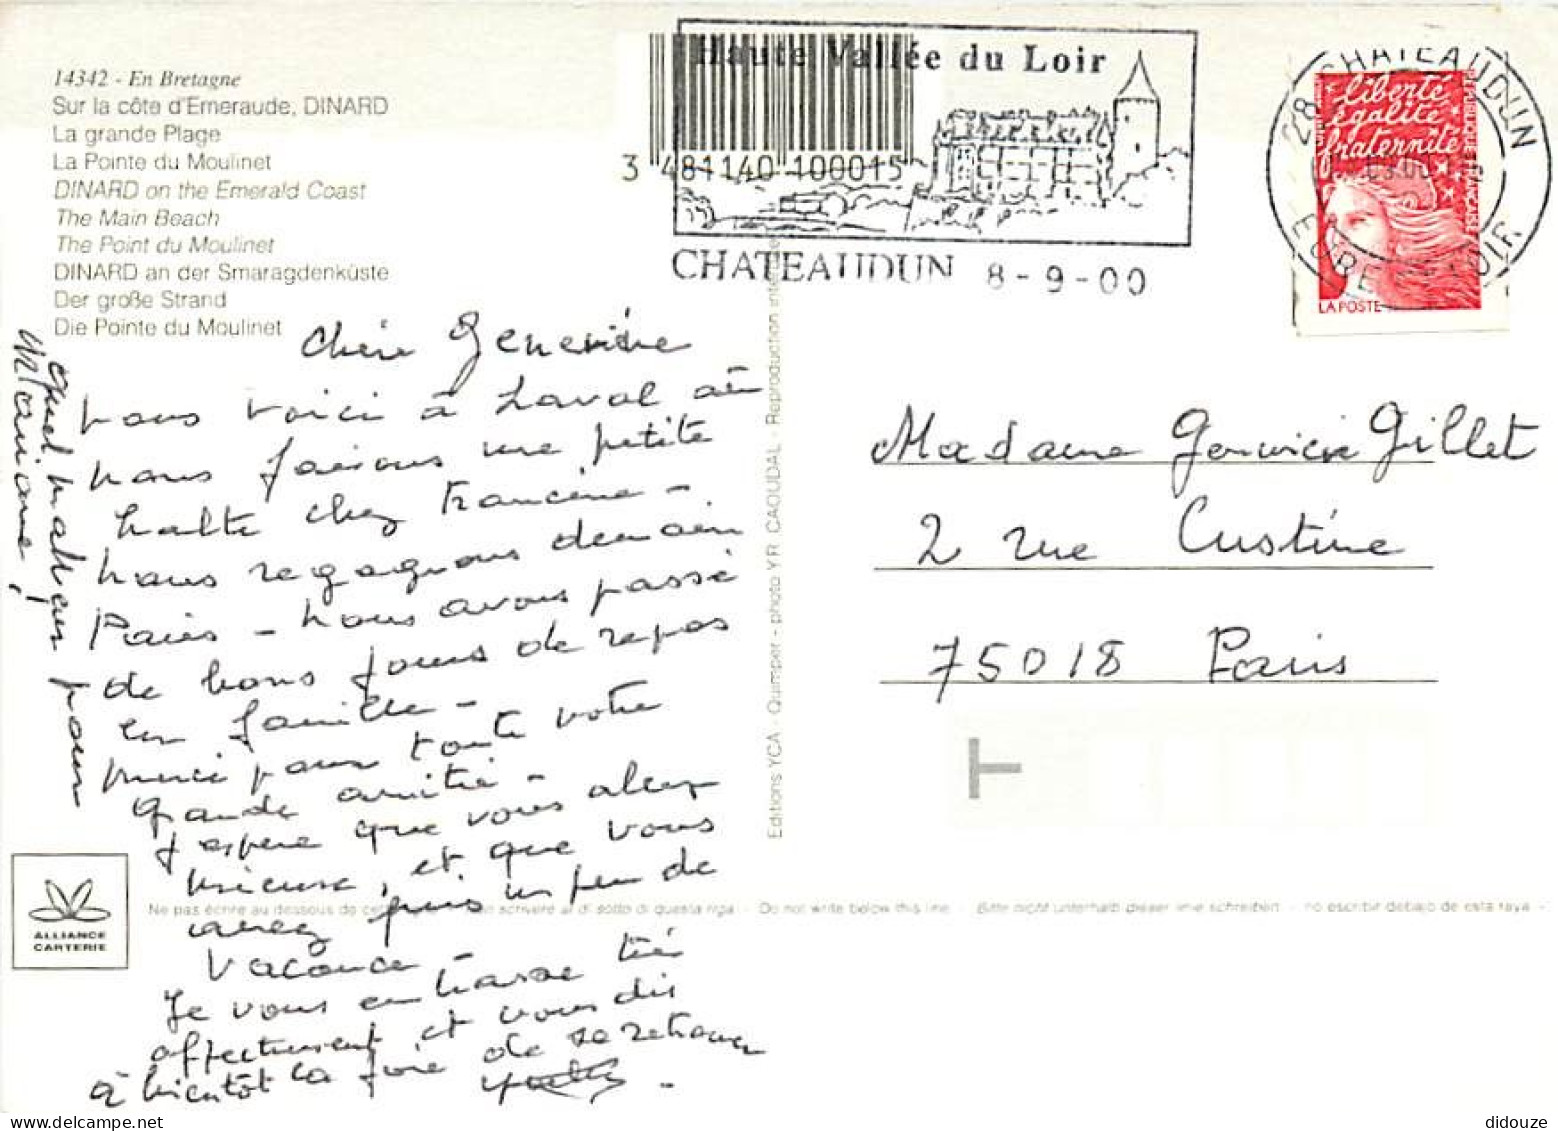 14342 - En Bretagne
Sur la côte d'Emeraude, DINARD
La grande Plage
La Pointe du Moulinet
DINARD on the Emerald Coast
The Main Beach
The Point du Moulinet
DINARD an der Smaragdenküste
Der große Strand
Die Pointe du Moulinet
Haute Vallée du Loir
3 481140 100015
CHATEAUDUN 8-9-00
28 CHATEAUDUN
EURE ET LOIR
liberté
égalité
fraternité
LA POSTE
Chère Geneviève
nous voici à Laval où
nous faisons une petite
halte chez Francine -
nous regagnons demain
Paris - nous avons passé
de bons jours de repos
en famille -
merci pour toute votre
grande amitié -
J'espère que vous allez
mieux, et que vous
avez pris un peu de
vacance -
Je vous embrasse très
affectueusement et vous dis
à bientôt la joie de se retrouver
Madame Geneviève Gillet
2 rue Custine
75018 Paris
T
Editions YCA - Quimper - photo Y.R. CAOUDAL - Reproduction interdite
ALLIANCE
CARTERIE
Ne pas écrire au dessous de cette ligne - Non scrivere al di sotto di questa riga - Do not write below this line - Bitte nicht unterhalb dieser linie schreiben - no escribir debajo de esta raya -
didouze